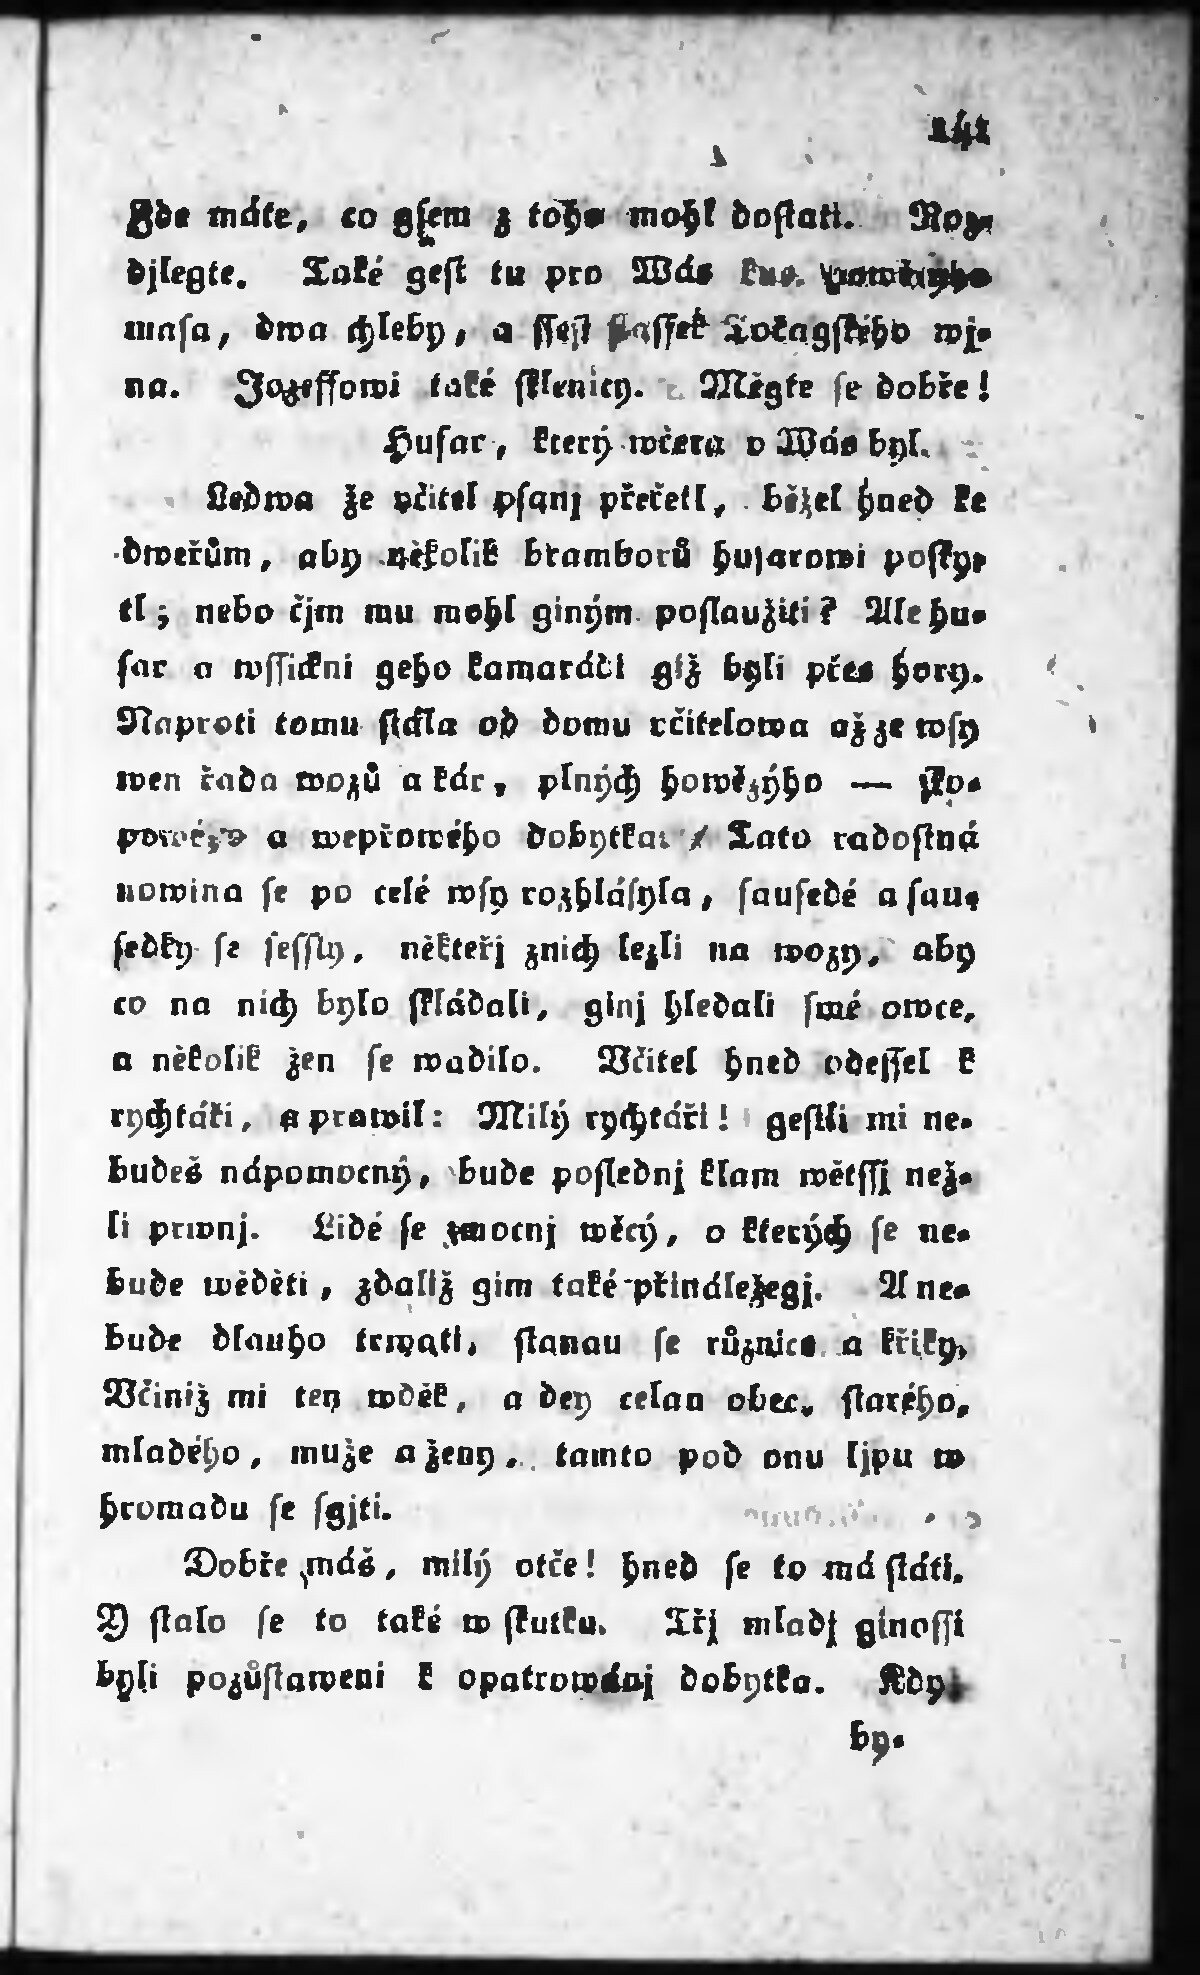 141
Zde máte, co gsem z toho mohl dostati. Roz-
djlegte. Také gest tu pro Wás kus howězyho
masa, dwa chleby, a ssest flassek Tokagského wj-
na. Jozeffowi také sklenicy. Měgte se dobře!
Husar, který wčera v Wás byl.
Ledwa že včitel psanj přečetl, běžel hned ke
dweřům, aby několik bramborů husarowi posky-
tl; nebo čjm mu mohl giným poslaužiti? Ale hu-
sar a wssickni geho kamarádi giž byli přes hory.
Naproti tomu stála od domu včitelowa až ze wsy
wen řada wozů a kár, plných howězýho — sko-
powého a wepřowého dobytka. Tato radostná
nowina se po celé wsy rozhlásyla, sausedé a sau-
sedky se sessly, někteřj znich lezli na wozy, aby
co na nich bylo skládali, ginj hledali swé owce,
a několik žen se wadilo. Včitel hned odessel k
rychtáři, a prawil: Milý rychtáři! gestli mi ne-
budeš nápomocný, bude poslednj klam wětssj než-
li prwnj. Lidé se zmocnj wěcý, o kterých se ne-
bude wěděti, zdaliž gim také přináležegj. A ne-
bude dlauho trwati, stanau se různice a křiky.
Včiniž mi ten wděk, a dey celau obec, starého,
mladého, muže a ženy, tamto pod onu ljpu w
hromadu se sgjti.
Dobře máš, milý otče! hned se to má státi.
Y stalo se to také w skutku. Třj mladj ginossi
byli pozůstaweni k opatrowánj dobytka. Kdy-
by-